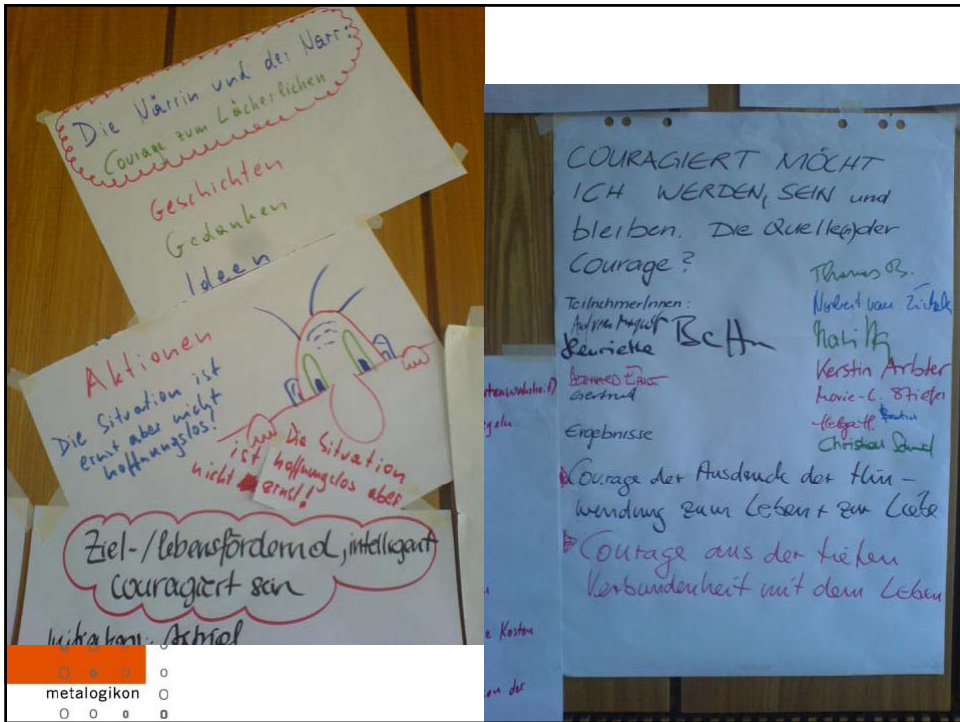 Die Närrin und der Narr:
Courage zum Lächerlichen
Geschichten
Gedanken
Ideen
Aktionen
Die Situation ist
ernst aber nicht
hoffnungslos!
Die Situation
ist hoffnungslos aber
nicht ernst!
Ziel-/lebensfördernd, intelligent
couragiert sein
metalogikon
COURAGIERT MÖCHT
ICH WERDEN, SEIN und
bleiben. Die Quelle(n) der
Courage?
TeilnehmerInnen:
Henrieke
Gertrud
Thomas B.
Norbert van
Kerstin Arbter
Marie-C.
Christian
Ergebnisse
Courage der Ausdruck der Hin-
wendung zum Leben + zur Liebe
Courage aus der tiefen
Verbundenheit mit dem Leben
e Kosten
on der